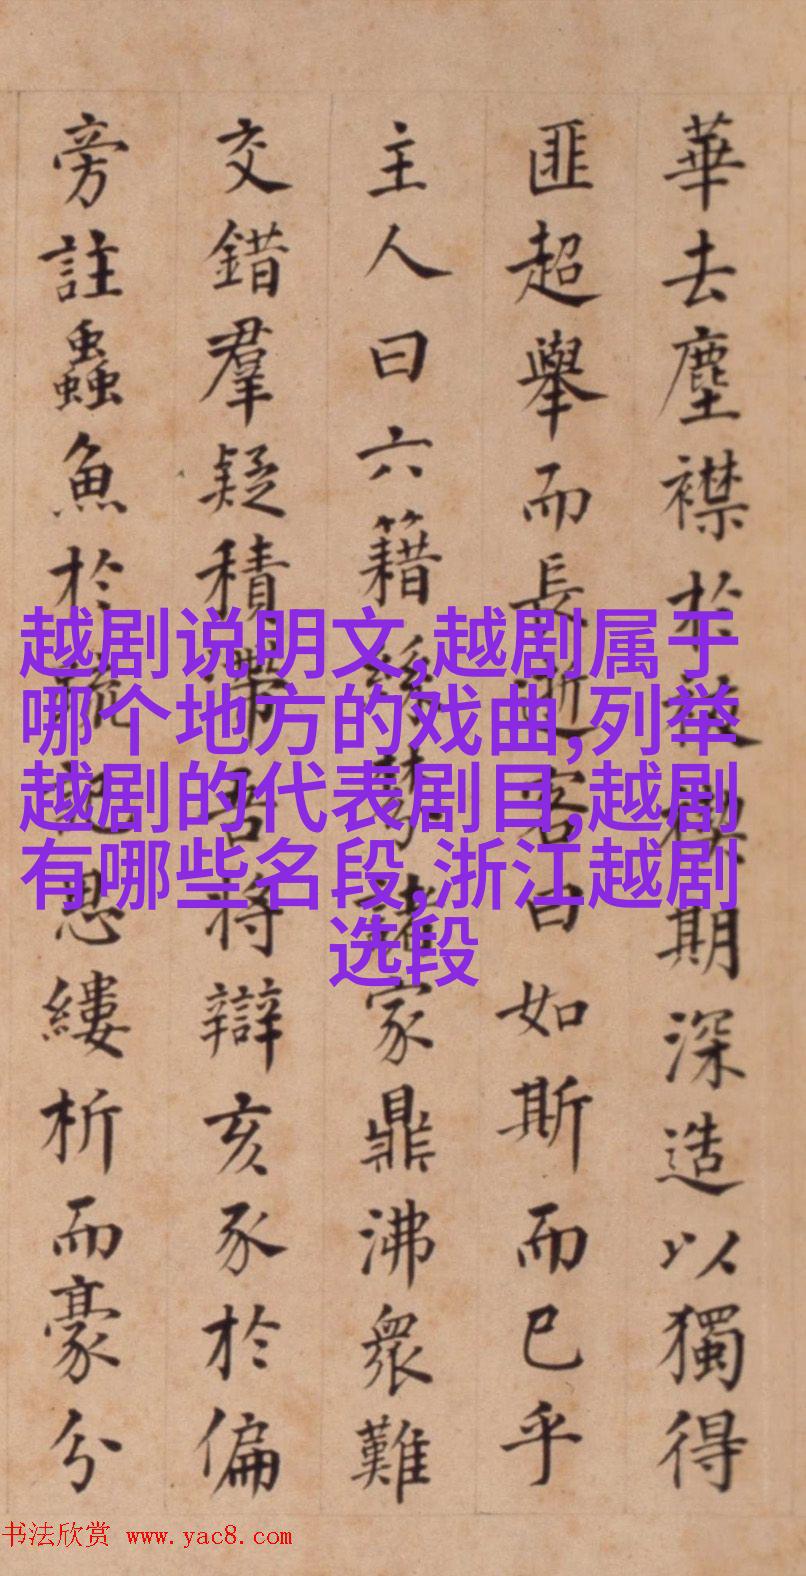 華去塵襟於期深造以獨得
匪超舉而長逝客曰如斯而已乎
主人曰六籍諸家鼎沸衆難
交錯羣疑積滯吾將辯亥豕於偏
旁註蟲魚於思縷析而豪分
越剧说明文,越剧属于
哪个地方的戏曲,列举
越剧的代表剧目,越剧
有哪些名段,浙江越剧
选段
书法欣赏 www.yac8.com